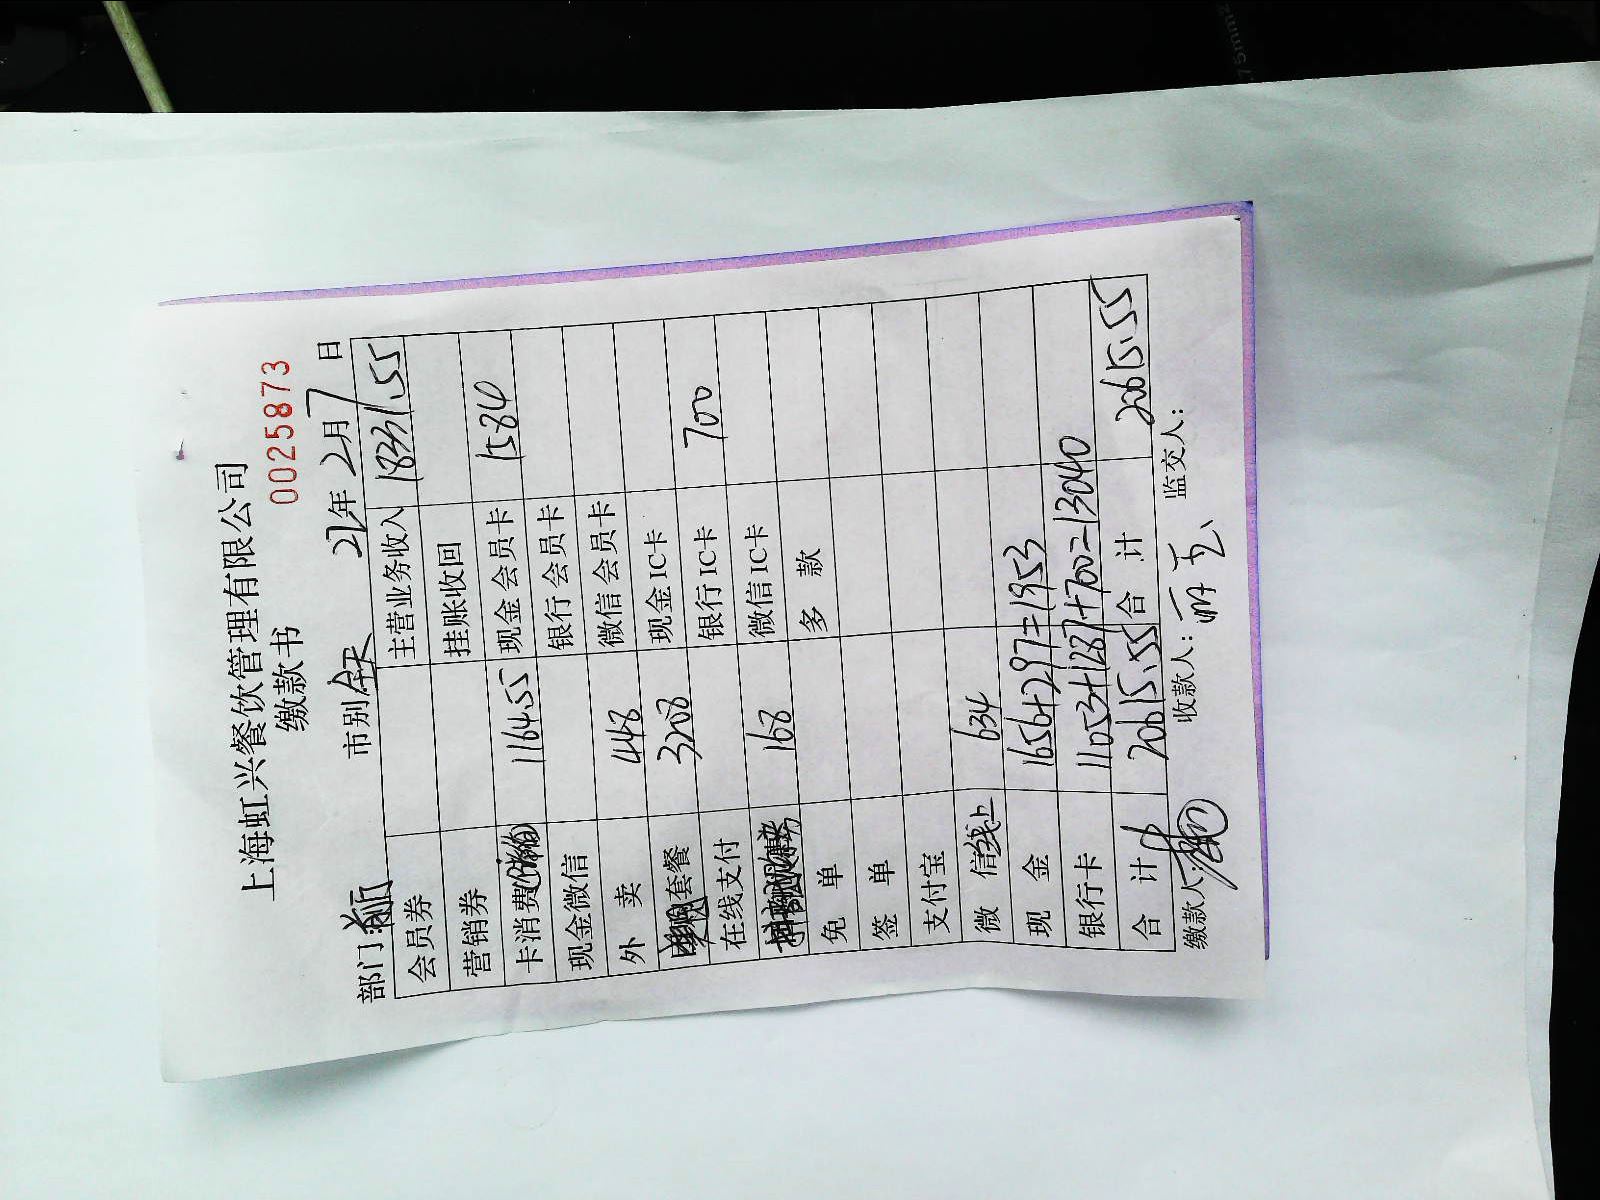 上海虹兴餐饮管理有限公司
缴款书
0025873
部门: 市别 全天 21年2月7日
会员券 主营业务收入 18331.55
营销券 挂账收回
卡消费 1164.55 现金会员卡 1584
现金微信 银行会员卡
外卖 448 微信会员卡
套餐 3208 现金IC卡
在线支付 银行IC卡 700
168 微信IC卡
免单 多款
签单
支付宝
微信线上 634
现金 1656+297=1953
银行卡 11053+1287+700=13040
合计 20615.55 合计 20615.55
缴款人: 收款人: 监交人: